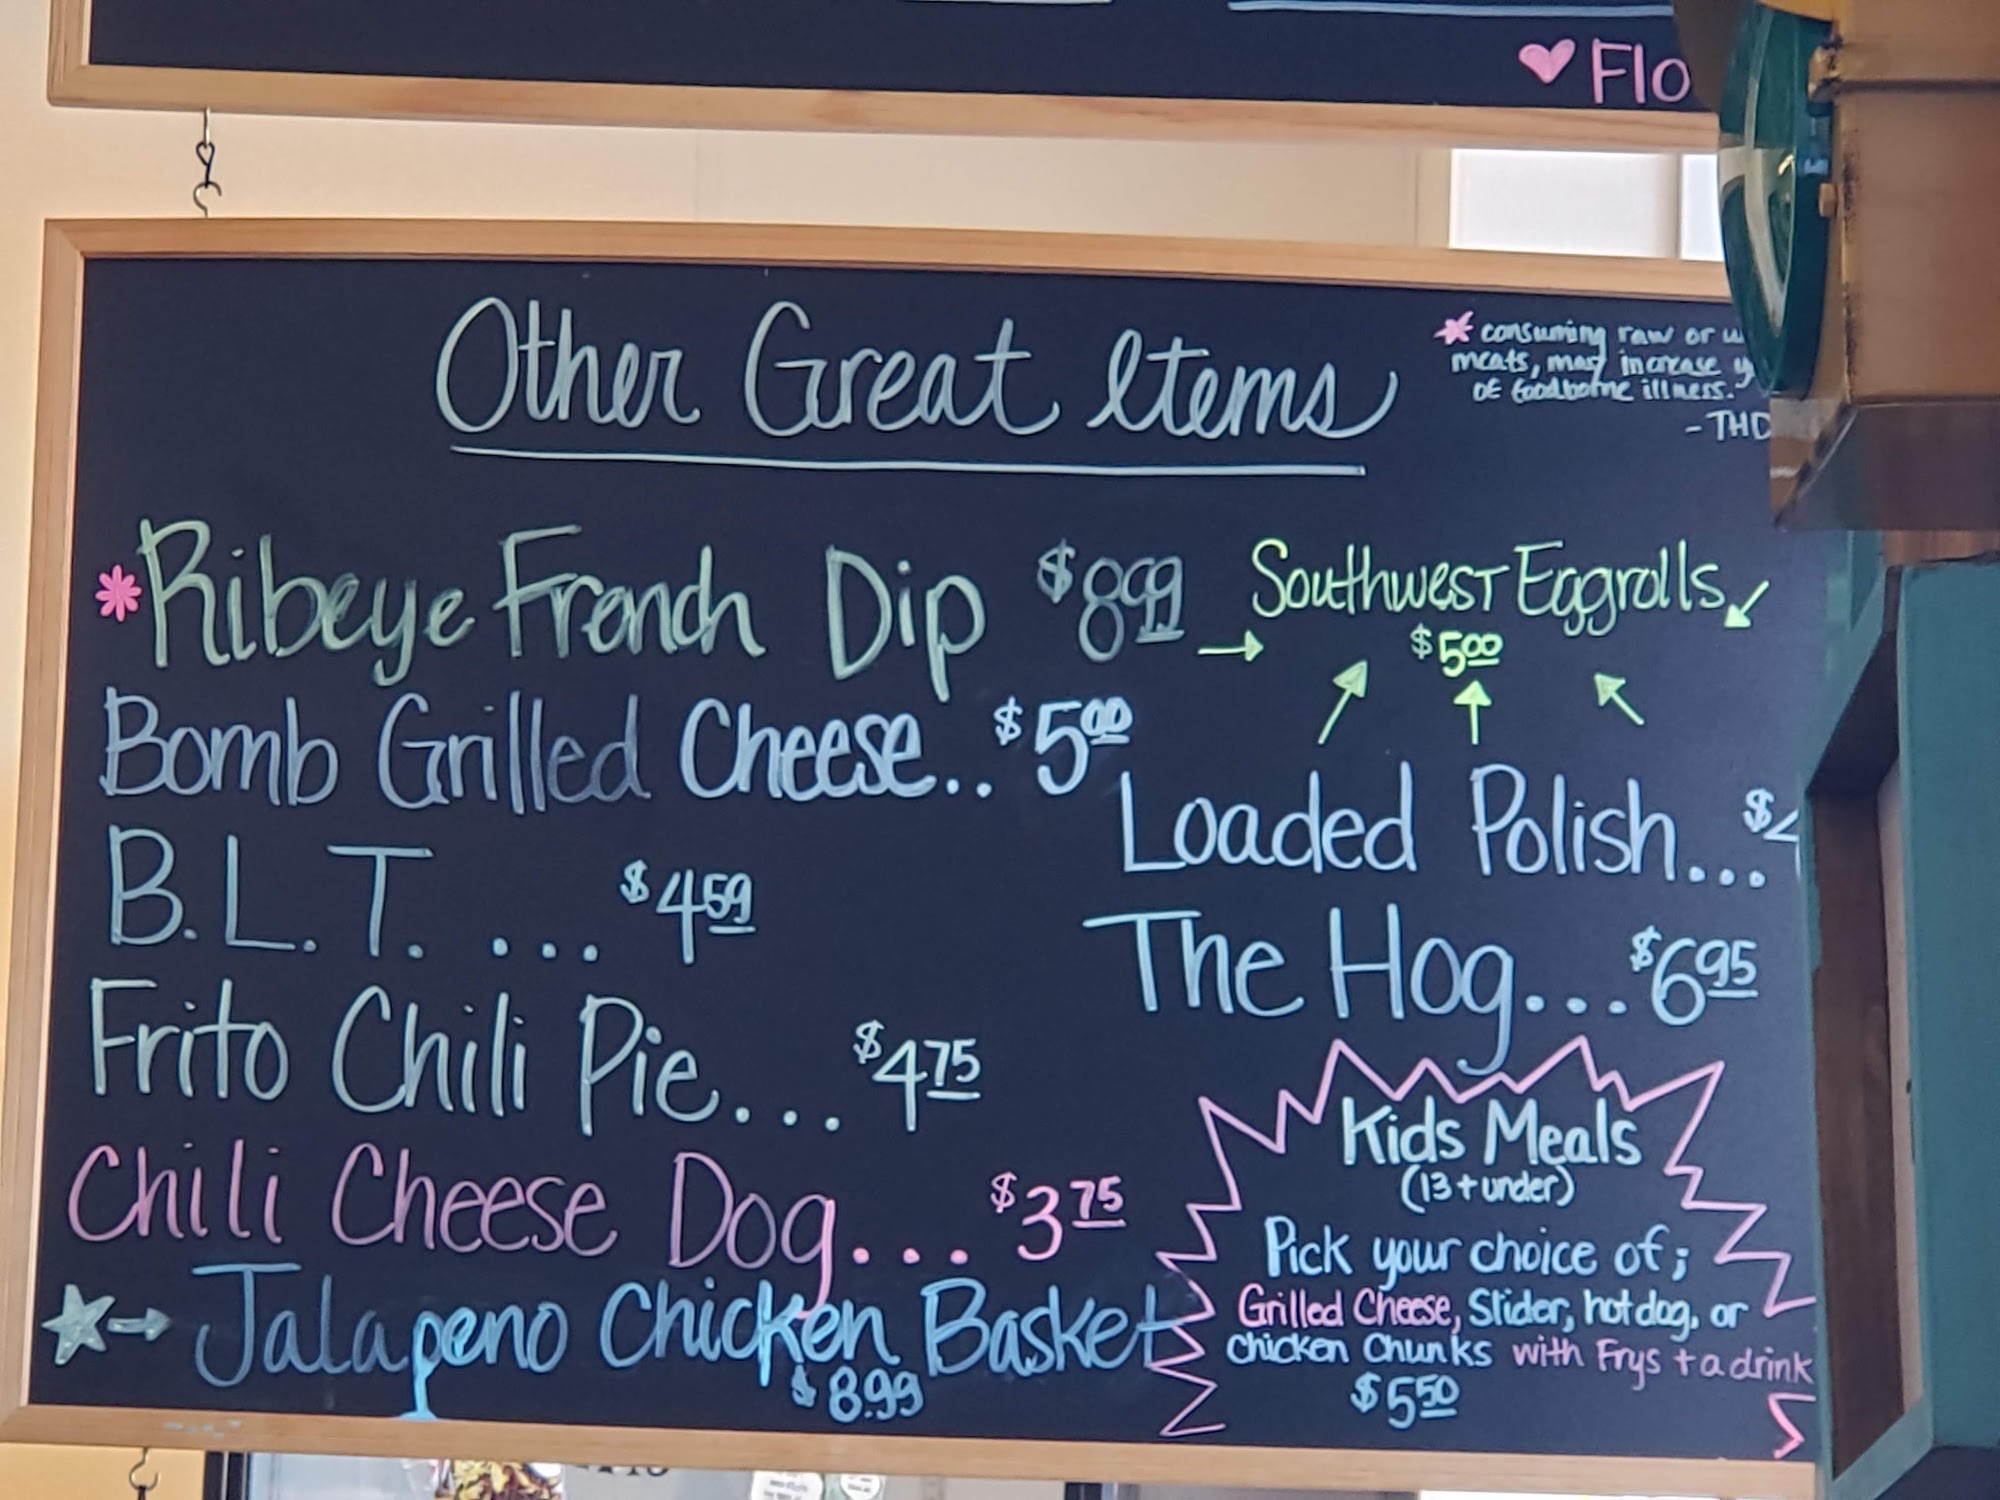 Flo
Other Great Items
* consuming raw or
meats, may increase
of foodborne illness.
- THD
*Ribeye French Dip $8.99
Southwest Eggrolls
$5.00
Bomb Grilled Cheese.. $5.00
Loaded Polish...
B.L.T. ... $4.59
The Hog... $6.95
Frito Chili Pie... $4.75
Chili Cheese Dog... $3.75
Jalapeno Chicken Basket
$8.99
Kids Meals
(13 + under)
Pick your choice of;
Grilled Cheese, Slider, hot dog, or
chicken chunks with Frys + a drink
$5.50